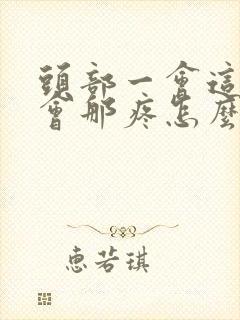 頭部一會這
會那疼怎麼
惠若琪